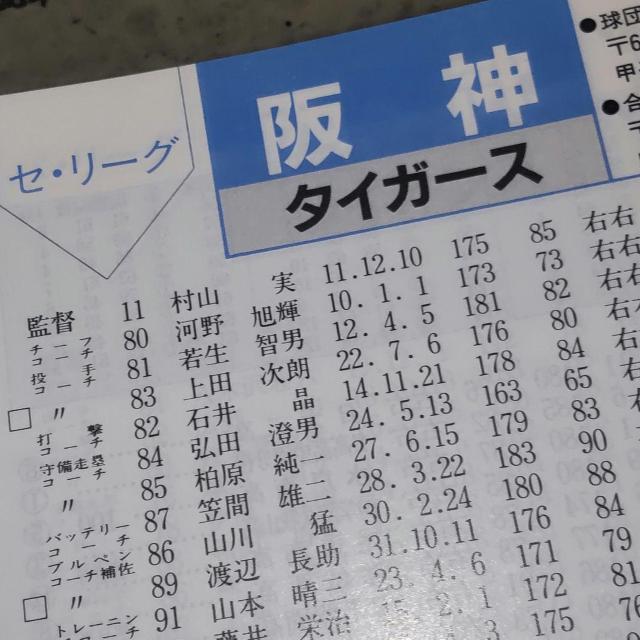 セ・リーグ
阪神
タイガース
●球団
〒6
甲
●合
監督 11 村山 実 11.12.10 175 85 右右
チーフコーチ 80 河野 旭輝 10. 1. 1 173 73 右右
投手コーチ 81 若生 智男 12. 4. 5 181 82 右右
□ 〃 83 上田 次朗 22. 7. 6 176 80 右
打撃コーチ 82 石井 晶 14.11.21 178 84 右
守備走塁コーチ 84 弘田 澄男 24. 5.13 163 65 右
〃 85 柏原 純一 27. 6.15 179 83
バッテリーコーチ 87 笠間 雄二 28. 3.22 183 90
ブルペンコーチ補佐 86 山川 猛 30. 2.24 180 88
□ 〃 89 渡辺 長助 31.10.11 176 84
トレーニングコーチ 91 山本 晴三 23. 4. 6 171 79
藤井 栄治 15. 2. 1 172 81
175 76